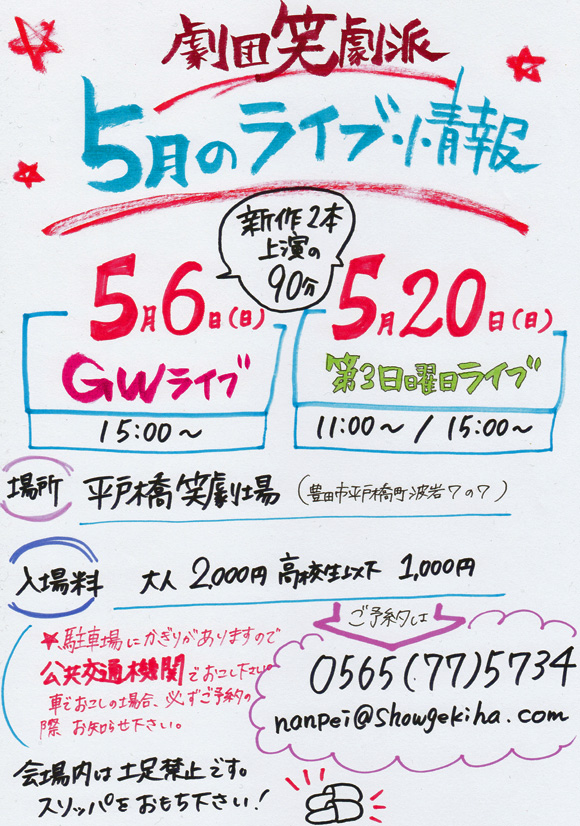 劇団笑劇派
5月のライブ情報
新作2本
上演の
90分
5月6日(日)
GWライブ
15:00〜
5月20日(日)
第3日曜日ライブ
11:00〜 / 15:00〜
場所 平戸橋笑劇場 (豊田市平戸橋町波岩7の7)
入場料 大人 2,000円 高校生以下 1,000円
★駐車場にかぎりがありますので
公共交通機関でおこし下さい。
車でおこしの場合、必ずご予約の
際 お知らせ下さい。
ご予約は
0565(77)5734
nanpei@showgekiha.com
会場内は土足禁止です。
スリッパをおもち下さい!